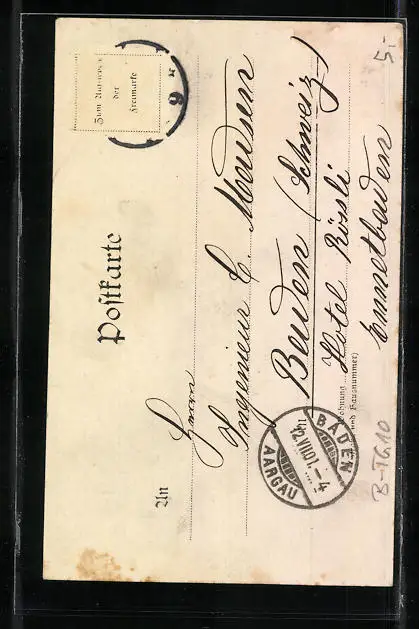 Postkarte
Zum
der
Freimarke
9
An
Herrn
Ingenieur C.
Baden (Schweiz)
Hotel Rössli
Ennetbaden
(Wohnung
und Hausnummer)
BADEN
12.VII.01.–4
AARGAU
5.-
B-TG10